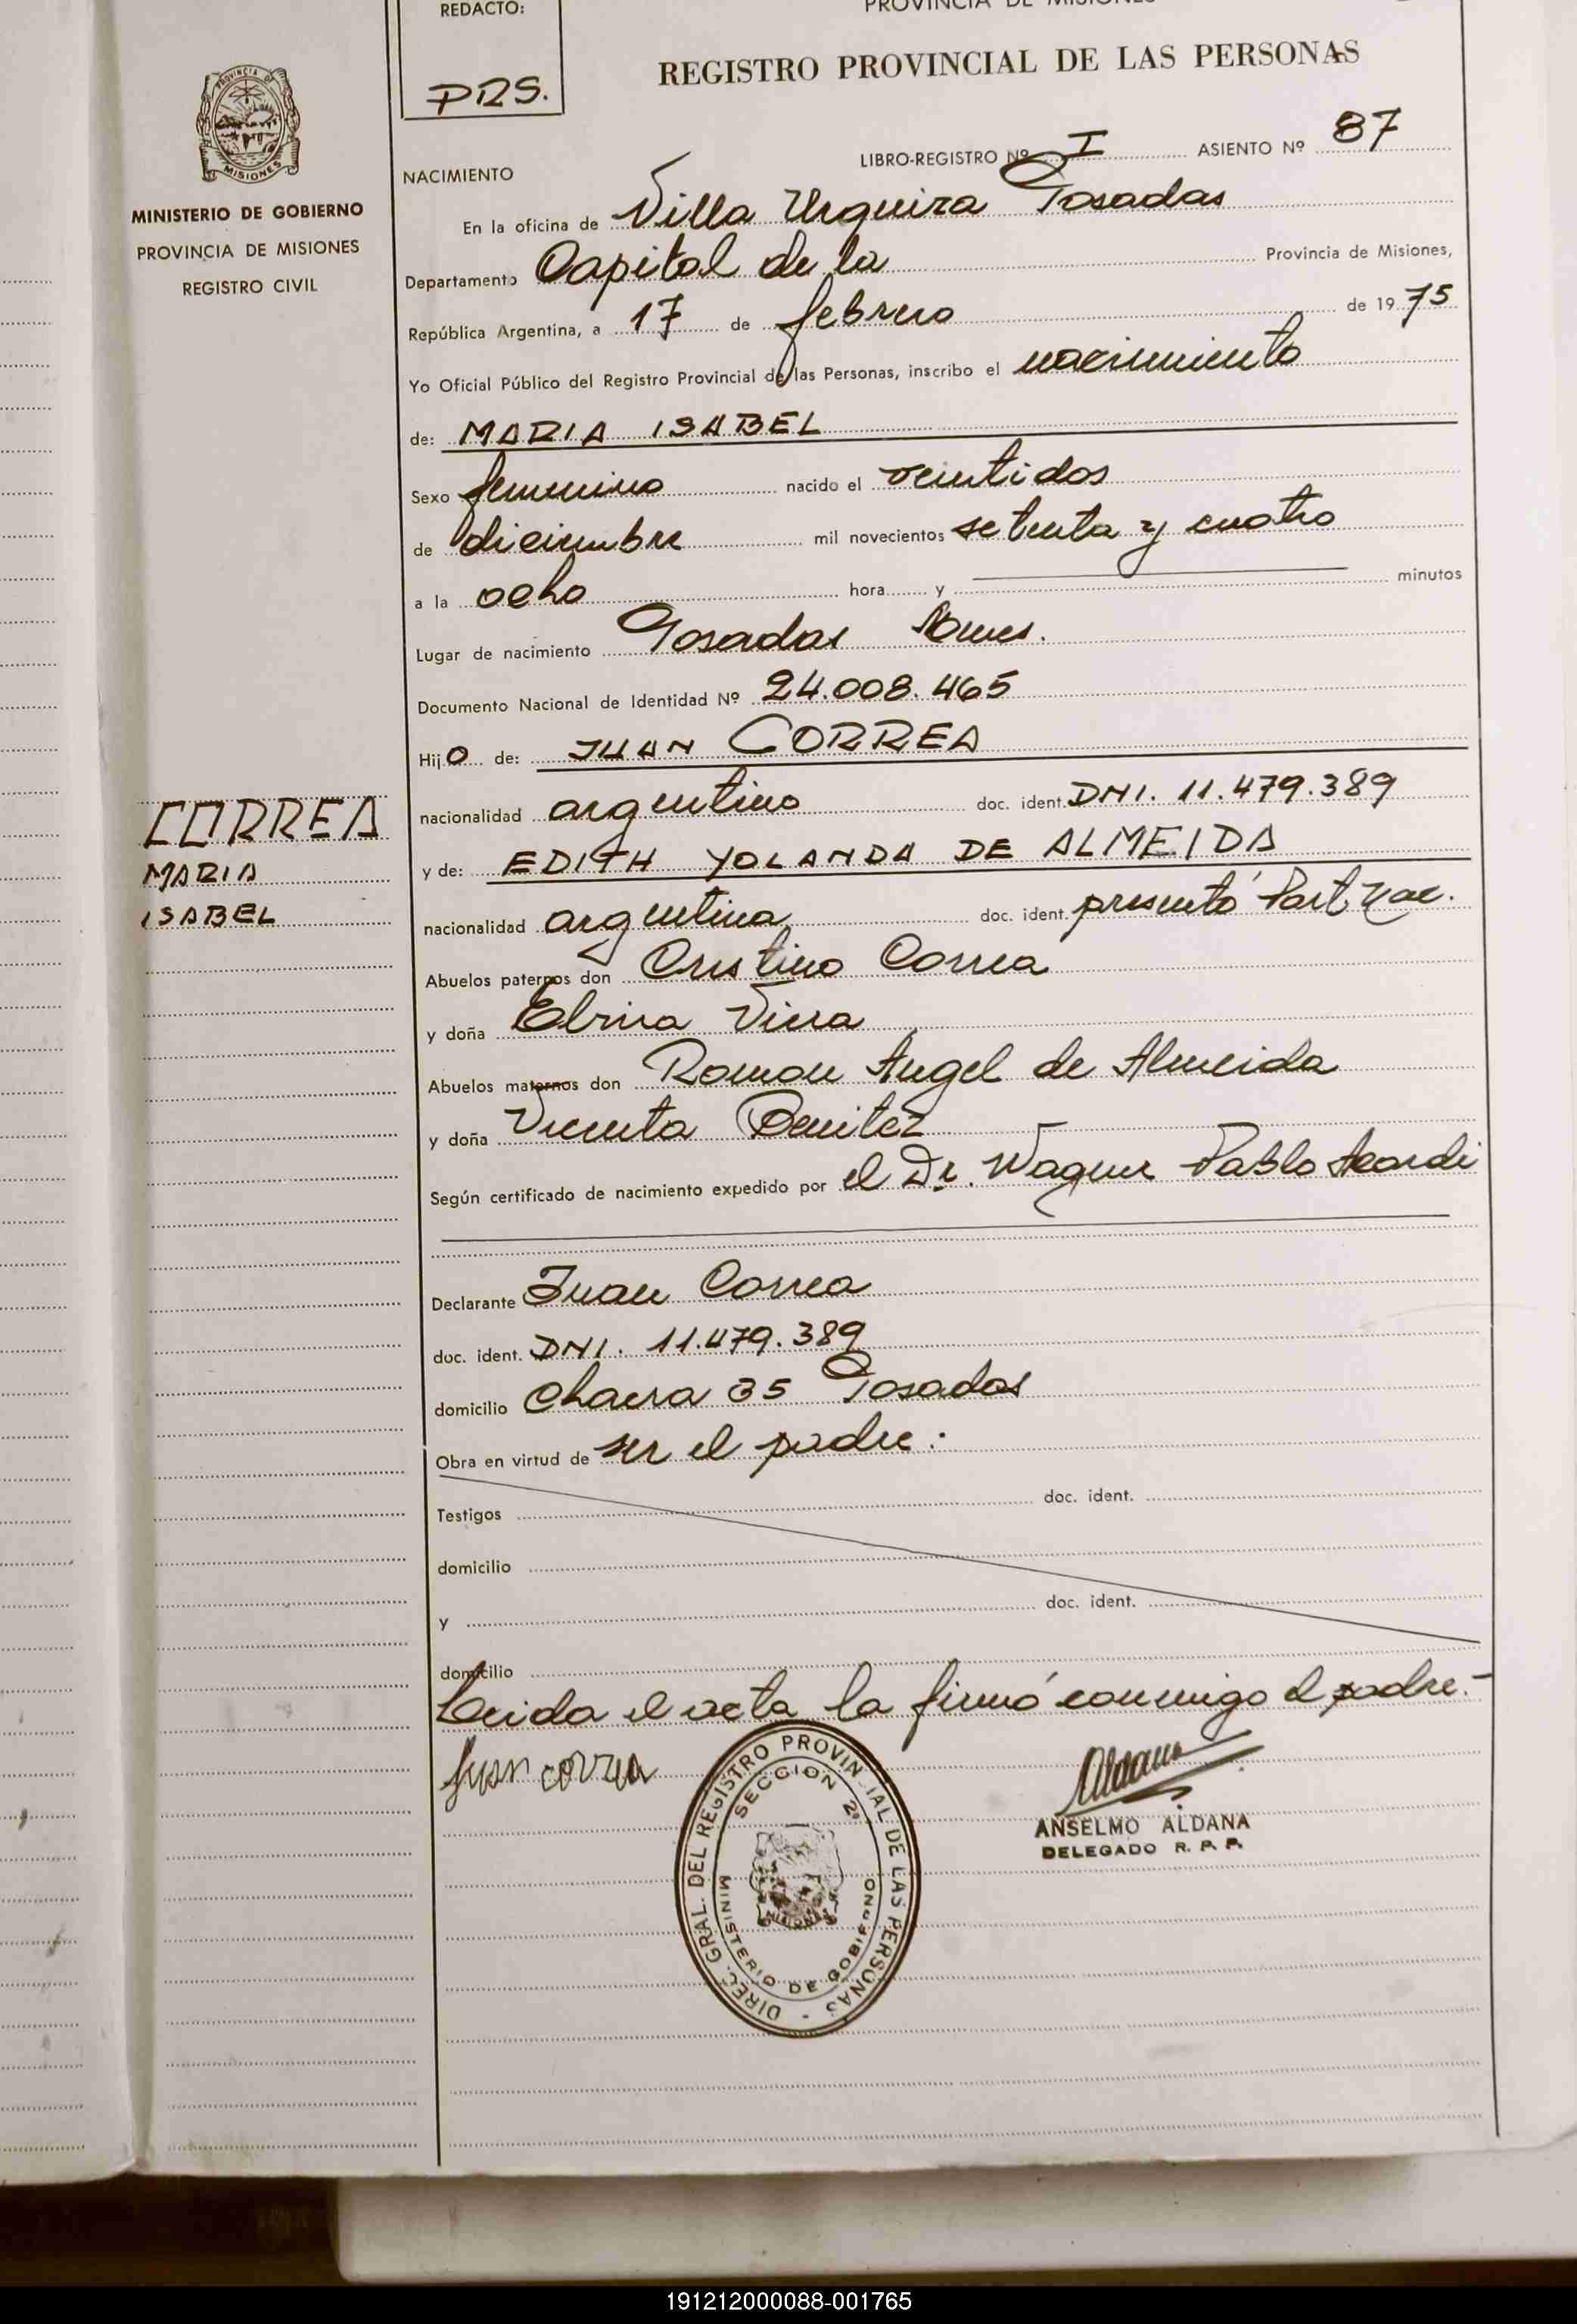 REDACTO:
PRS.
PROVINCIA DE MISIONES
REGISTRO PROVINCIAL DE LAS PERSONAS
PROVINCIA DE
MISIONES
MINISTERIO DE GOBIERNO
PROVINCIA DE MISIONES
REGISTRO CIVIL
LIBRO-REGISTRO Nº I ASIENTO Nº 87
NACIMIENTO
En la oficina de Villa Urquiza Posadas
Departamento Capital de la Provincia de Misiones,
República Argentina, a 17 de febrero de 1975
Yo Oficial Público del Registro Provincial de las Personas, inscribo el nacimiento
de: MARIA ISABEL
Sexo femenino nacido el veintidos
de diciembre mil novecientos setenta y cuatro
a la ocho hora y minutos
Lugar de nacimiento Posadas Mnes.
Documento Nacional de Identidad Nº 24.008.465
Hijo de: JUAN CORREA
nacionalidad argentino doc. ident. DNI. 11.479.389
CORREA
MARIA
ISABEL
y de: EDITH YOLANDA DE ALMEIDA
nacionalidad argentina doc. ident. presentó Part Nac.
Abuelos paternos don Cristino Correa
y doña Elvira Viera
Abuelos maternos don Ramon Angel de Almeida
y doña Vicenta Benitez
Según certificado de nacimiento expedido por el Dr. Wagner Pablo
Declarante Juan Correa
doc. ident. DNI. 11.479.389
domicilio Chacra 35 Posadas
Obra en virtud de ser el padre.
Testigos doc. ident.
domicilio
y doc. ident.
domicilio
Leida el acta la firmó conmigo el padre.-
Juan correa
DIREC. GRAL. DEL REGISTRO PROVINCIAL DE LAS PERSONAS -
SECCION 2º
MINISTERIO DE GOBIERNO
MISIONES
Aldana
ANSELMO ALDANA
DELEGADO R. P. P.
191212000088-001765